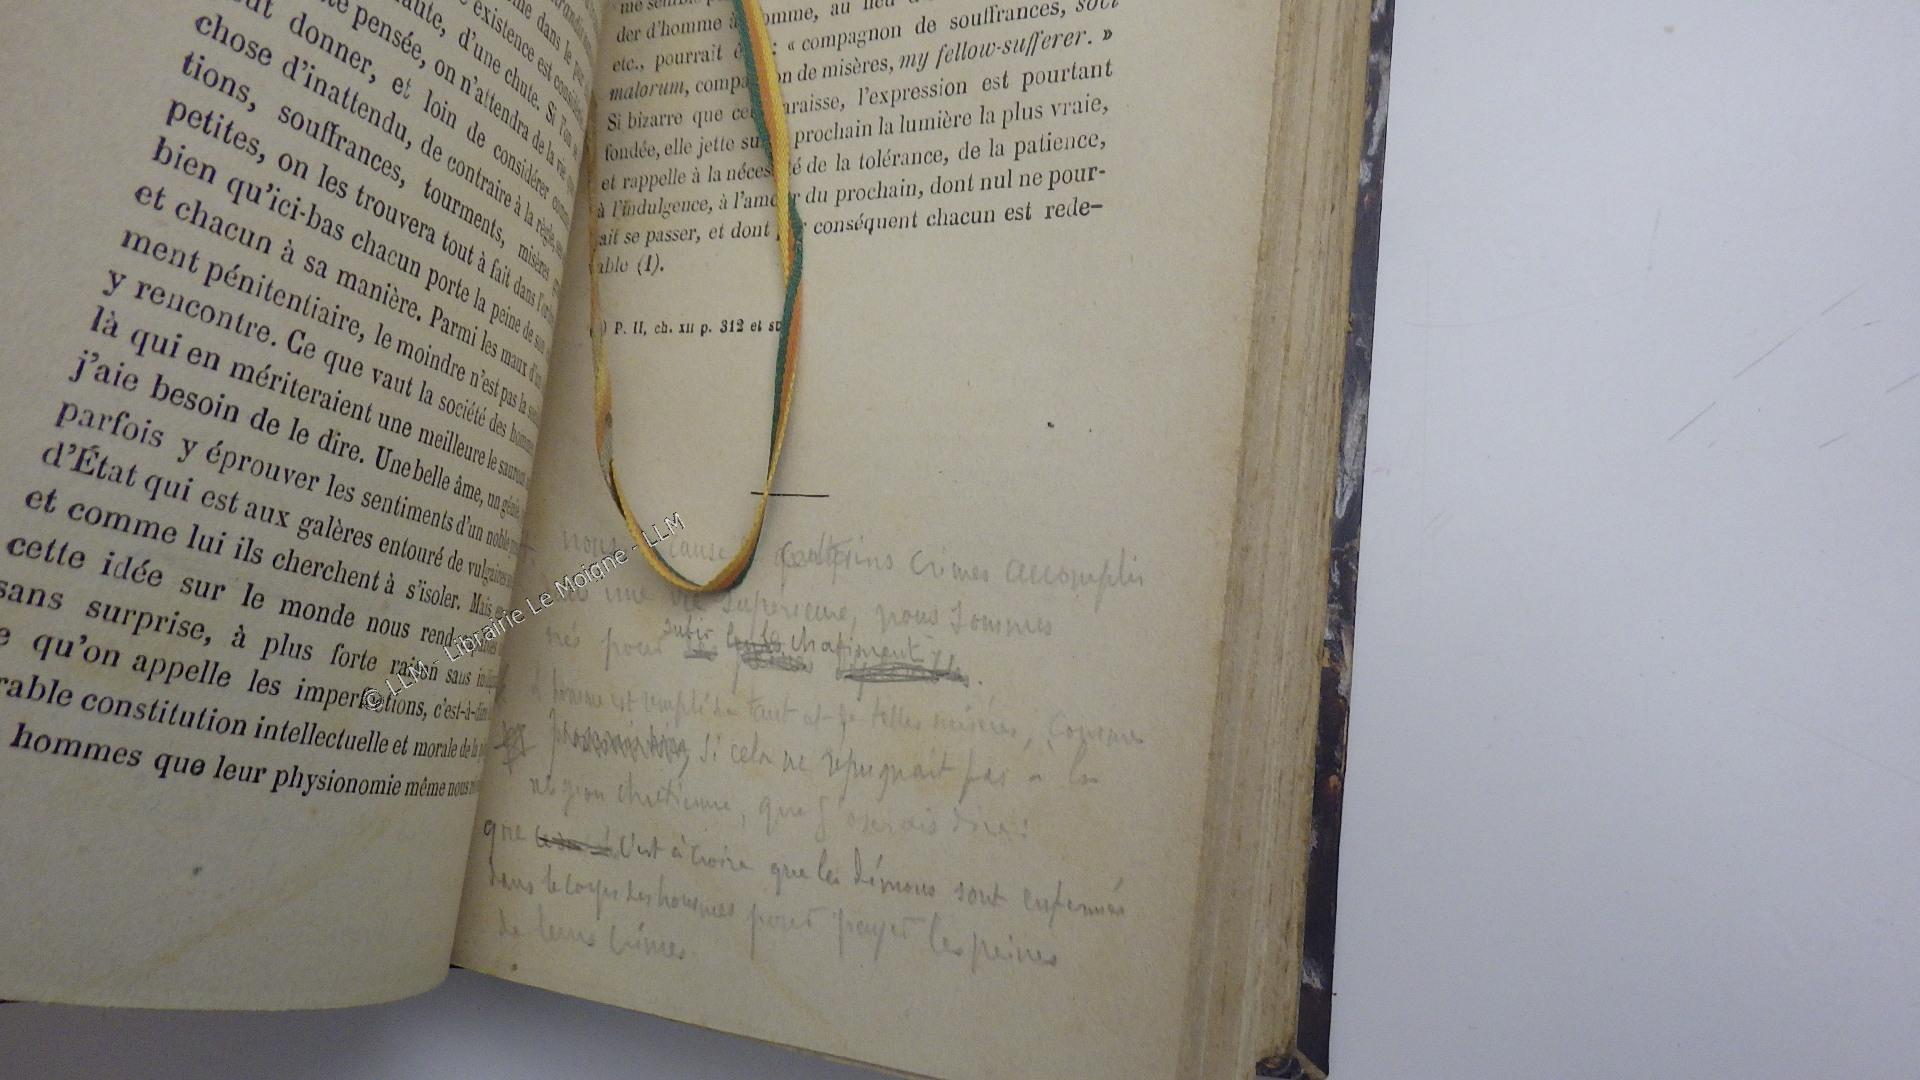 existence est considéré
haute, d'une chute. Si l'on
pensée, on n'attendra de la vie que
donner, et loin de considérer comme
chose d'inattendu, de contraire à la règle, ses
tions, souffrances, tourments, misères
petites, on les trouvera tout à fait dans l'ordre
bien qu'ici-bas chacun porte la peine de son
et chacun à sa manière. Parmi les maux d'un
ment pénitentiaire, le moindre n'est pas la
y rencontre. Ce que vaut la société des hommes
là qui en mériteraient une meilleure le sauront
j'aie besoin de le dire. Une belle âme, un génie
parfois y éprouver les sentiments d'un noble
d'État qui est aux galères entouré de vulgaires
et comme lui ils cherchent à s'isoler. Mais, en
cette idée sur le monde nous rend
sans surprise, à plus forte raison sans
qu'on appelle les imperfections, c'est-à-dire
rable constitution intellectuelle et morale de la
hommes que leur physionomie même nous
der d'homme à homme, au lieu
etc., pourrait : « compagnon de souffrances, soci
malorum, compagnon de misères, my fellow-sufferer. »
Si bizarre que cela paraisse, l'expression est pourtant
fondée, elle jette sur prochain la lumière la plus vraie,
et rappelle à la nécessité de la tolérance, de la patience,
à l'indulgence, à l'amour du prochain, dont nul ne pour-
ait se passer, et dont par conséquent chacun est rede-
vable (1).
) P. II, ch. XII p. 312 et su
nous cause certains crimes accomplis
une vie supérieure, nous sommes
subir chatiment
nés pour
homme est rempli de tant et de telles misères,
si cela ne répugnait pas à la
religion chrétienne, que j'oserais dire :
que c'est à croire que les démons sont enfermés
dans le corps des hommes pour payer les peines
de leurs crimes.
© LLM - Librairie Le Moigne - LLM